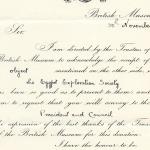 British Museum
November
Sir,
I am directed by the Trustees of
British Museum to acknowledge the receipt of
object mentioned on the other side,
The Egypt Exploration Society
been so good as to present to them and
to request that you will convey to the
President and Council
expression of the best thanks of the Trustees
of the British Museum for this donation.
I have the honour to be,